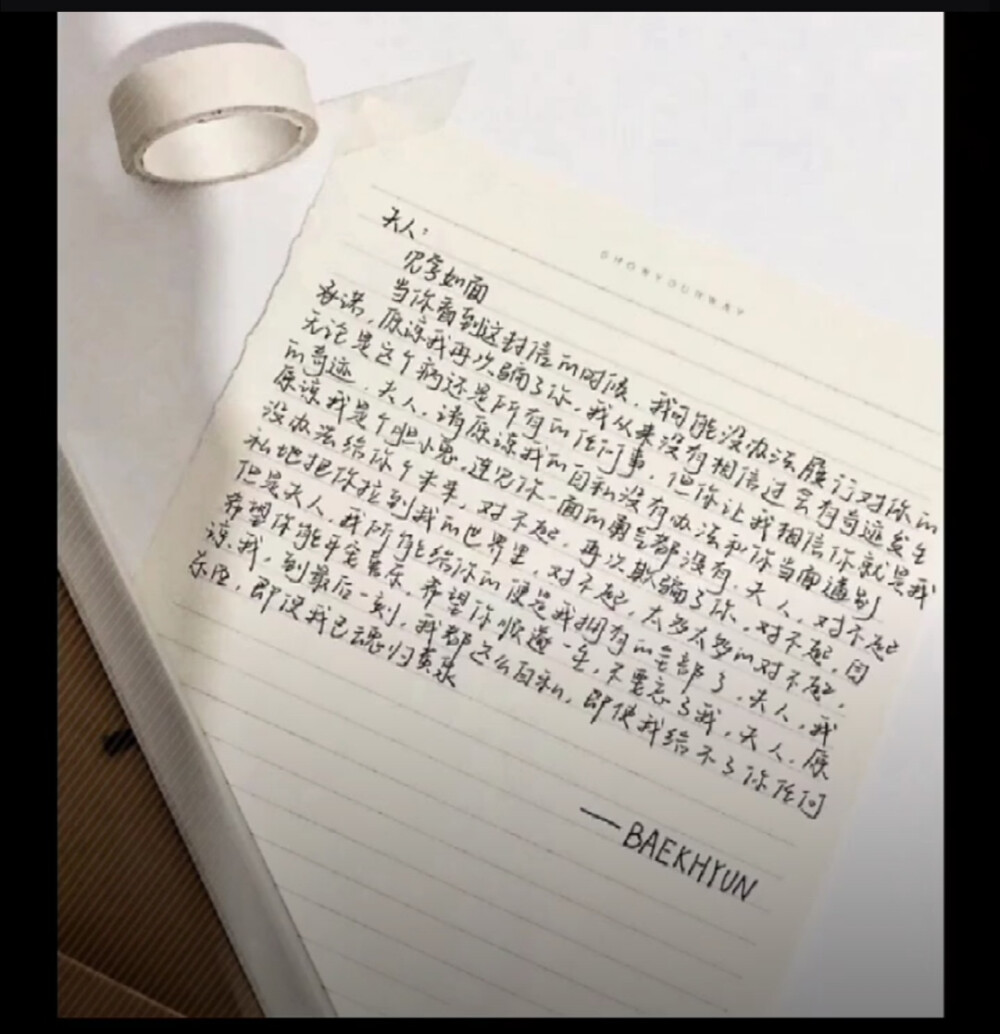 夫人：
见字如面
当你看到这封信的时候，我可能没办法履行对你的
承诺，原谅我再次骗了你，我从来没有相信过会有奇迹发生
无论是这个病还是所有的任何事，但你让我相信你就是我
的奇迹，夫人，请原谅我的自私没有办法和你当面道别
原谅我是个胆小鬼，连见你一面的勇气都没有，夫人，对不起
没办法给你个未来，对不起，再次欺骗了你，对不起，自
私地把你拉到我的世界里，对不起，太多太多的对不起，
但是夫人，我所能给你的便是我拥有的全部了，夫人，我
希望你能平安喜乐，希望你顺遂一生，不要忘了我，夫人，原
谅我，到最后一刻，我都这么自私，即使我给不了你任何
东西，即使我已魂归黄泉
——BAEKHYUN